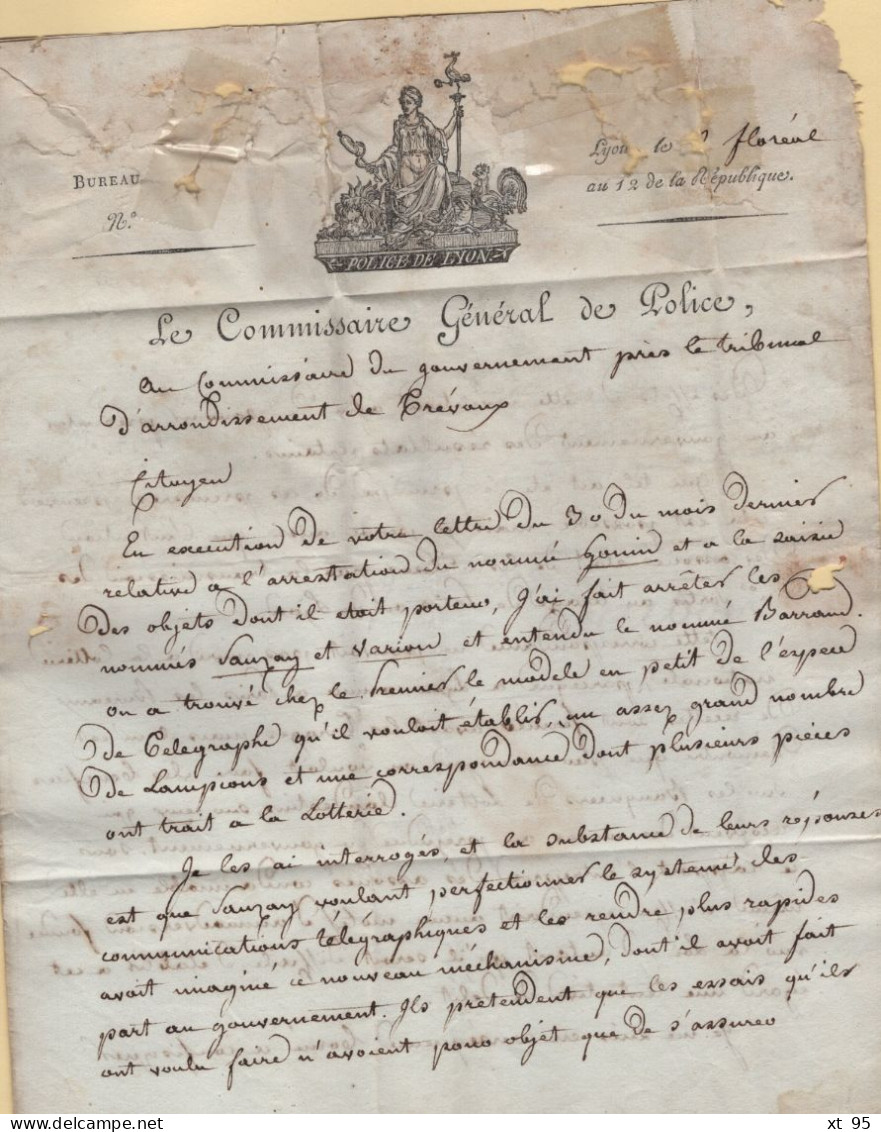 BUREAU
N.º
POLICE DE LYON
Lyon le floréal
an 12 de la République.
Le Commissaire Général de Police,
au Commissaire du gouvernement près le tribunal
d'arrondissement de Trévoux
Citoyen
En execution de votre lettre du 30 du mois dernier
relative a l'arrestation du nommé Gonin et a la saisie
des objets dont il etoit porteur, J'ai fait arrêter les
nommés Sauzay et Varion et entendu le nommé Barraud.
on a trouvé chez le Premier le modele en petit de l'espece
de Telegraphe qu'il vouloit établir, un assez grand nombre
de Lampions et une correspondance dont plusieurs pièces
ont trait a la Lotterie.
Je les ai interrogés, et la substance de leurs réponses
est que Sauzay voulant perfectionner le systeme des
communications télégraphiques et les rendre plus rapides
avoit imaginé ce nouveau méchanisme, dont il avoit fait
part au gouvernement. Ils prétendent que les essais qu'ils
ont voulu faire n'avoient pour objet que de s'assurer
xt 95